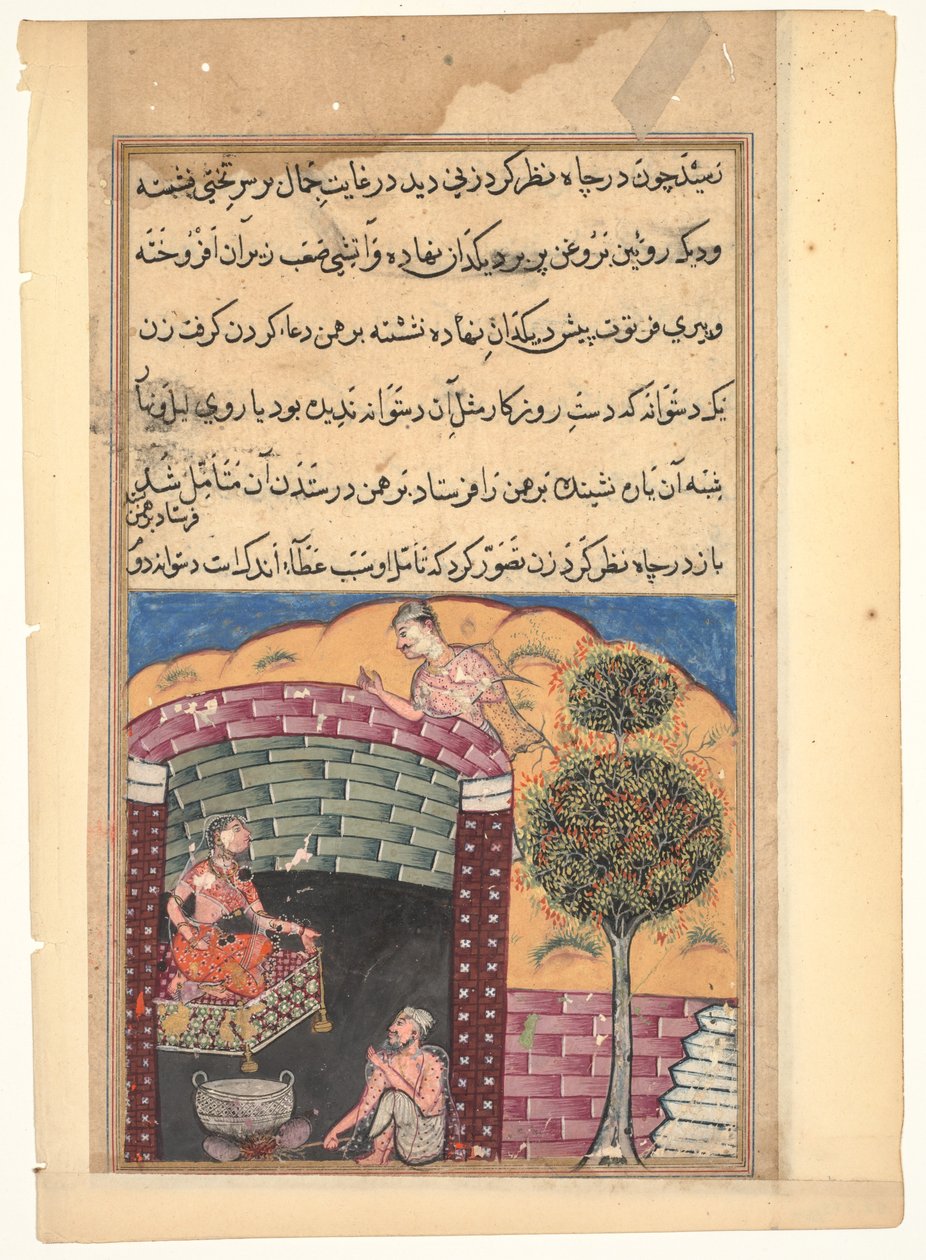 رسید چون در چاه نظر کرد زنی دید در غایتِ جمال بر سرِ تختی نشسته
و دیک رویین بروغن پر بر دیکدان نهاده و آتشی صعب زیر آن افروخته
و پیری فرتوت پیش دیکدانِ نهاده نشسته برهمن دعا کردن کرفت زن
یک دستوانه که دستِ روزکار مثلِ آن دستوانه ندیده بود یا روی لیل و نهار
شبه آن یاره نشینده برهمن را فرستاد برهمن در ستدن آن متأمل شد
فرستاد برهمن
باز در چاه نظر کرد زن تصور کرد که تأمل او سبب عطاء اندک است دستوانه دوم